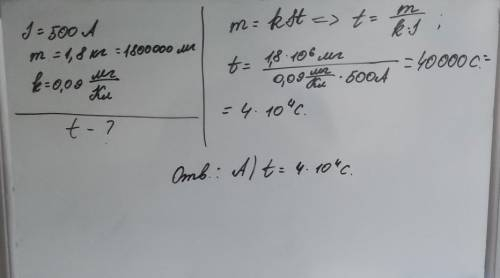 I = 500 A
m = 1,8 кг = 1800000 мг
k = 0,09 мг/Кл
t - ?
m = kIt => t = m/(k·I) ;
t = (1,8 · 10⁶ мг)/(0,09 мг/Кл · 500A) = 40000 с =
= 4 · 10⁴ с.
Отв.: А) t = 4 · 10⁴ с.